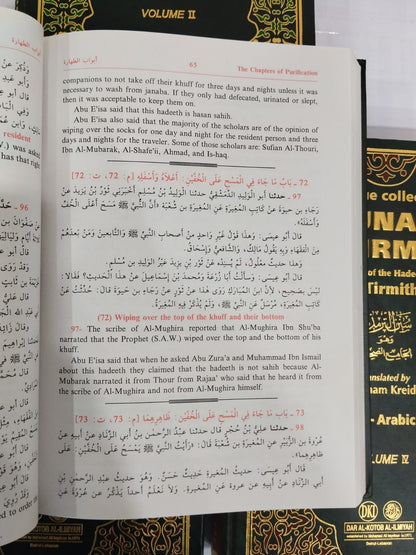 VOLUME II
أبواب الطهارة
65
The Chapters of Purification
companions to not take off their khuff for three days and nights unless it was
necessary to wash from janaba. If they only defecated, urinated or slept,
then it was acceptable to keep them on.
Abu E'isa said that this hadeeth is hasan sahih.
Abu E'isa also said that the majority of the scholars are of the opinion of
wiping over the socks for one day and night for the resident person and three
days and nights for the traveler. Some of those scholars are: Sufian Al-Thouri,
Ibn Al-Mubarak, Al-Shafe'ii, Ahmad, and Is-haq.
72 - بَابُ مَا جَاءَ فِي الْمَسْحِ عَلَى الْخُفَّيْنِ: أَعْلَاهُ وَأَسْفَلِهِ [م: 72، ت: 72]
97 - حدثنا أَبُو الْوَلِيدِ الدِّمَشْقِيُّ حدثنا الْوَلِيدُ بْنُ مُسْلِمٍ أَخْبَرَنِي ثَوْرُ بْنُ يَزِيدَ عَنْ
رَجَاءِ بْنِ حَيْوَةَ عَنْ كَاتِبِ الْمُغِيرَةِ عَنِ الْمُغِيرَةِ بْنِ شُعْبَةَ «أَنَّ النَّبِيَّ ﷺ مَسَحَ أَعْلَى الْخُفِّ
وَأَسْفَلَهُ».
قَالَ أَبُو عِيسَى: وَهَذَا قَوْلُ غَيْرِ وَاحِدٍ مِنْ أَصْحَابِ النَّبِيِّ ﷺ وَالتَّابِعِينَ وَمَنْ بَعْدَهُمْ
مِنَ الْفُقَهَاءِ وَبِهِ يَقُولُ مَالِكٌ، وَالشَّافِعِيُّ وَإِسْحَاقُ.
وَهَذَا حَدِيثٌ مَعْلُولٌ، لَمْ يُسْنِدْهُ عَنْ ثَوْرِ بْنِ يَزِيدَ غَيْرُ الْوَلِيدِ بْنِ مُسْلِمٍ.
قَالَ أَبُو عِيسَى: وَسَأَلْتُ أَبَا زُرْعَةَ وَمُحَمَّدَ بْنَ إِسْمَاعِيلَ عَنْ هَذَا الْحَدِيثِ؟ فَقَالَا:
لَيْسَ بِصَحِيحٍ، لِأَنَّ ابْنَ الْمُبَارَكِ رَوَى هَذَا عَنْ ثَوْرٍ عَنْ رَجَاءِ بْنِ حَيْوَةَ قَالَ: حُدِّثْتُ عَنْ
كَاتِبِ الْمُغِيرَةِ، مُرْسَلٌ عَنِ النَّبِيِّ ﷺ، وَلَمْ يُذْكَرْ فِيهِ الْمُغِيرَةُ.
(72) Wiping over the top of the khuff and their bottom
97- The scribe of Al-Mughira reported that Al-Mughira Ibn Shu'ba
narrated that the Prophet (S.A.W.) wiped over the top and the bottom of his
khuff.
Abu E'isa said that when he asked Abu Zura'a and Muhammad Ibn Ismail
about this hadeeth they claimed that the hadeeth is not sahih because Al-
Mubarak narrated it from Thour from Rajaa' who said that he heard it from
the scribe of Al-Mughira and not from Al-Mughira himself.
73 - بَابُ مَا جَاءَ فِي الْمَسْحِ عَلَى الْخُفَّيْنِ: ظَاهِرِهِمَا [م: 73، ت: 73]
98 - حدثنا عَلِيُّ بْنُ حُجْرٍ قَالَ حدثنا عَبْدُ الرَّحْمَنِ بْنُ أَبِي الزِّنَادِ عَنْ أَبِيهِ عَنْ
عُرْوَةَ بْنِ الزُّبَيْرِ عَنِ الْمُغِيرَةِ بْنِ شُعْبَةَ قَالَ: «رَأَيْتُ النَّبِيَّ ﷺ يَمْسَحُ عَلَى الْخُفَّيْنِ: عَلَى
ظَاهِرِهِمَا».
قَالَ أَبُو عِيسَى: حَدِيثُ الْمُغِيرَةِ حَدِيثٌ حَسَنٌ. وَهُوَ حَدِيثُ عَبْدِ الرَّحْمَنِ بْنِ
أَبِي الزِّنَادِ عَنْ أَبِيهِ عَنْ عُرْوَةَ عَنِ الْمُغِيرَةِ. وَلَا نَعْلَمُ أَحَداً يَذْكُرُ عَنْ عُرْوَةَ عَنِ
أبواب الطهارة
resident
V.) was asked
has that right
96 - حدثنا
ed to order
VOLUME IV
DKI
DAR AL-KOTOB AL-ILMIYAH
Beirut-Lebanon